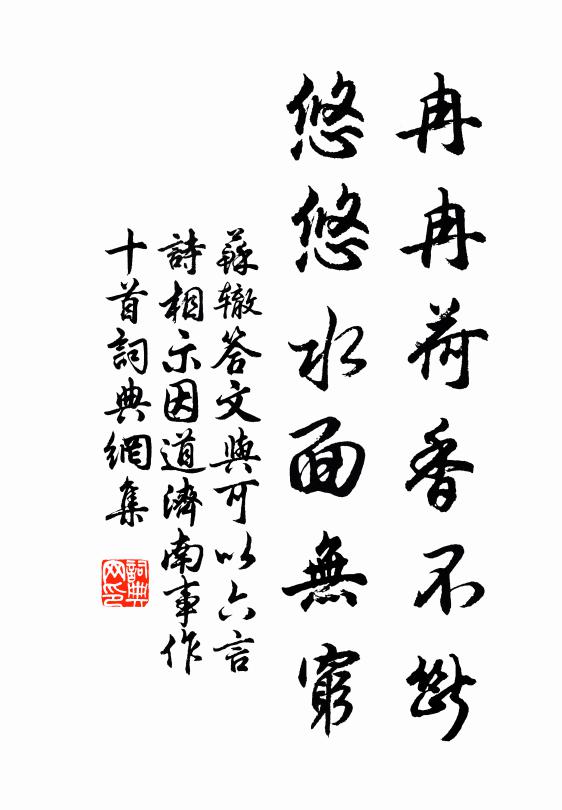 冉冉荷香不斷
悠悠水面無窮
蘇辙答文與可以六言
詩相示因道濟南事作
十首詞典網集
詞典网印